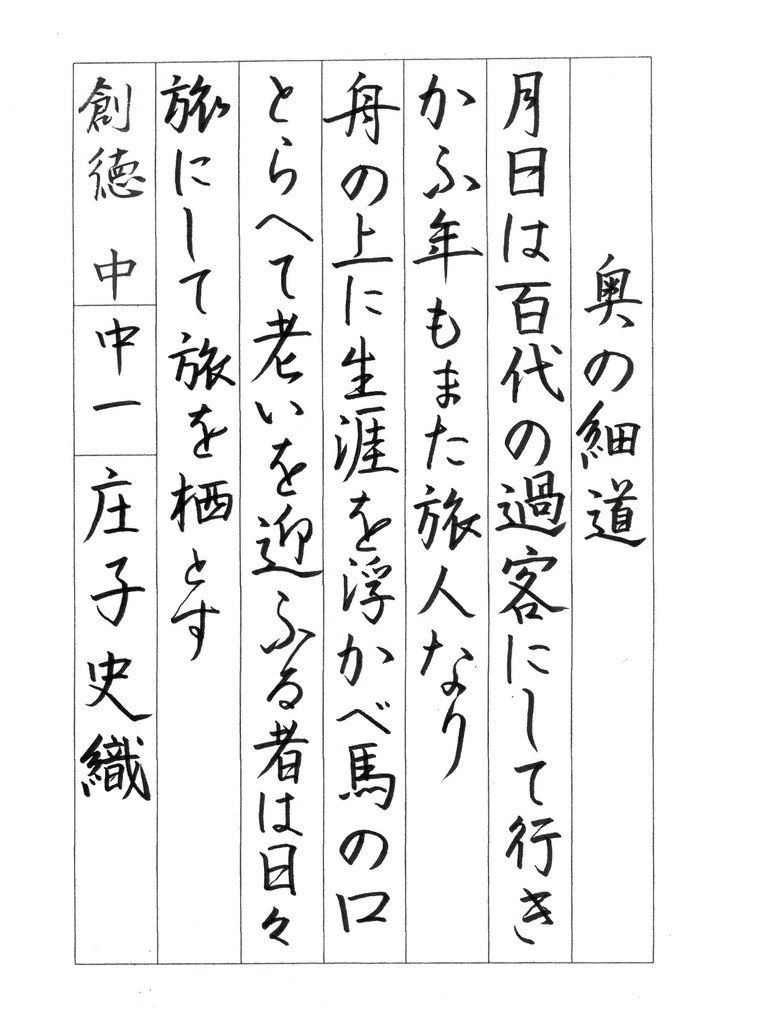 奥の細道
月日は百代の過客にして行き
かふ年もまた旅人なり
舟の上に生涯を浮かべ馬の口
とらへて老いを迎ふる者は日々
旅にして旅を栖とす
創徳 中 中一 庄子史織